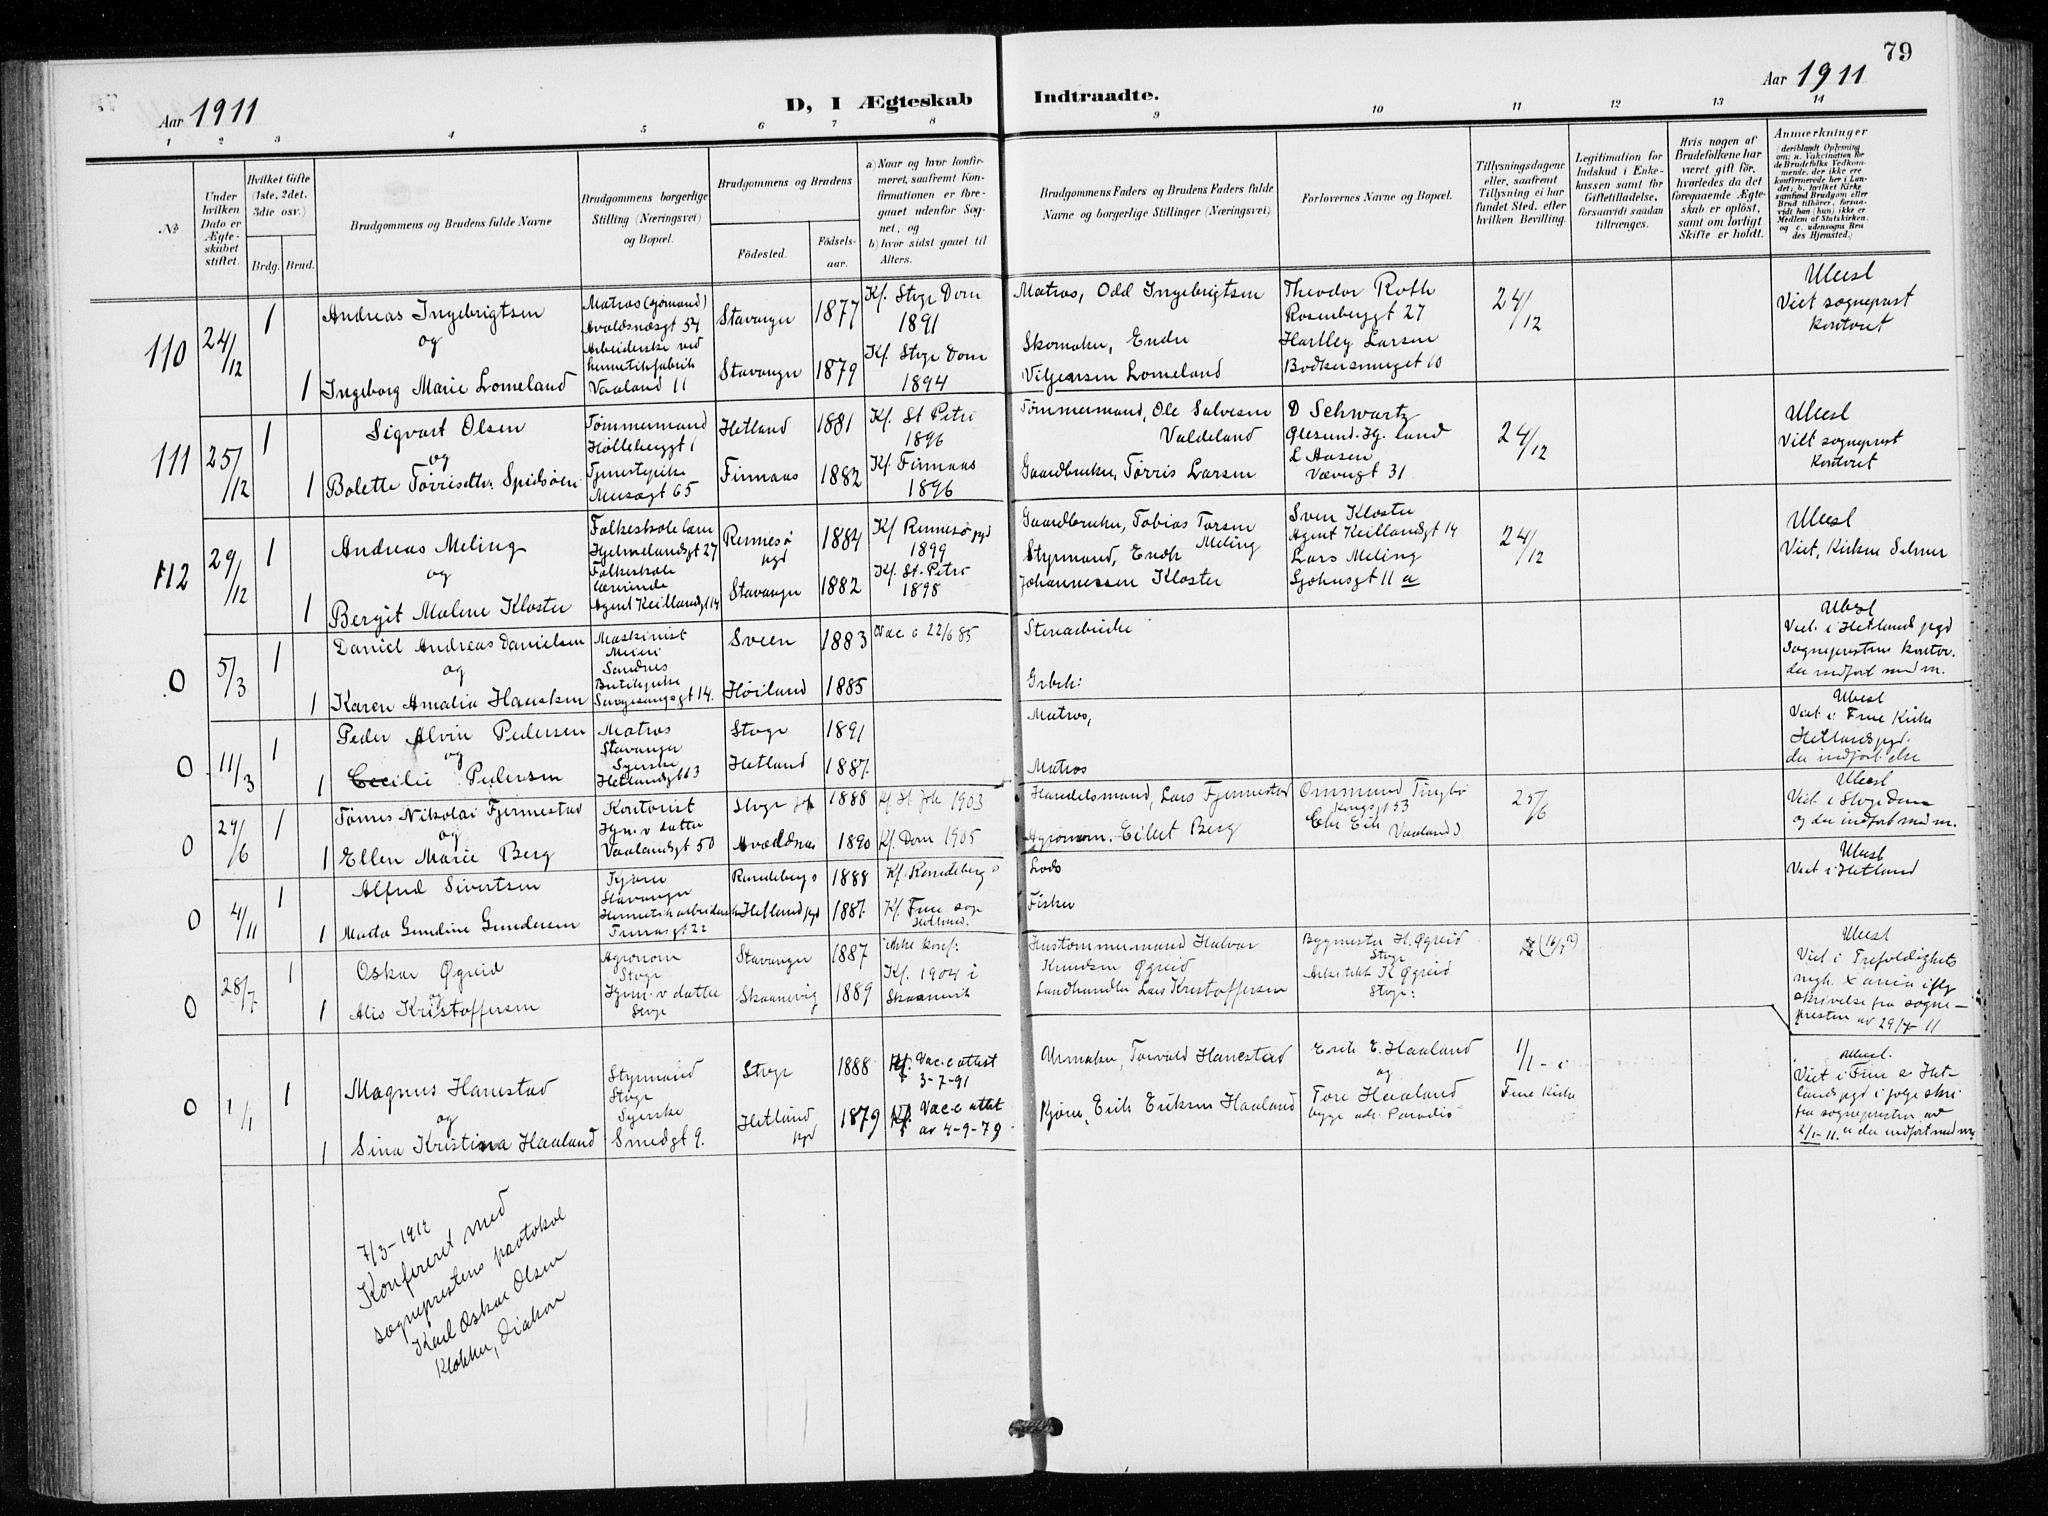 79
Aar 1911
D, I Ægteskab Indtraadte.
Aar 1911
1 2 3 4 5 6 7 8 9 10 11 12 13 14
No.
Under hvilken Dato er Ægteskabet stiftet.
Hvilket Gifte (1ste, 2det, 3die osv.)
Brdg. Brud.
Brudgommens og Brudens fulde Navne
Brudgommens borgerlige Stilling (Næringsvei) og Bopæl.
Brudgommens og Brudens
Fødested.
Fødselsaar.
a) Naar og hvor konfirmeret, saafremt Konfirmationen er foregaaet udenfor Sognet, og
b) hvor sidst gaaet til Alters.
Brudgommens Faders og Brudens Faders fulde Navne og borgerlige Stillinger (Næringsvei)
Forlovernes Navne og Bopæl.
Tillysningsdagene eller, saafremt Tillysning ei har fundet Sted, efter hvilken Bevilling.
Legitimation for Indskud i Enkekassen samt for Giftetilladelse, forsaavidt saadan tiltrænges.
Hvis nogen af Brudefolkene har været gift før, hvorledes da det foregaaende Ægteskab er opløst, samt om lovligt Skifte er holdt.
Anmerkninger (deriblandt Oplysning om: a. Vakcination for de Brudefolks Vedkommende, der ikke ere konfirmerede her i Landet; b. hvilket Kirkesamfund Brudgom eller Brud tilhører, forsaavidt han (hun) ikke er Medlem af Statskirken, og c. udensogns Brudes Hjemsted.)
110 24/12 1 Andreas Ingebrigtsen Matros (sømand) Avaldsnæsgt 54 Stavanger 1877 Kf. Stvgr Dom 1891 Matros, Odd Ingebrigtsen Theodor Roth Rosenberggt 27 24/12 Viet sogneprest kontoret
og
1 Ingeborg Marie Lomeland Arbeiderske ved hermetikfabrik Vaaland 11 Stavanger 1879 Kf. Stvgr Dom 1894 Skomaker, Endre Lomeland Hartley Larsen 10
111 25/12 1 Sigvart Olsen Tømmermand Hølleberggt 1 Hetland 1881 Kf. St Petri 1896 Tømmermand, Ole Salvesen Valdeland D Schwartz 24/12 Viet sogneprest kontoret
og
1 Bolette Tørrisdtr. Spidsøen Tjenestepike Musægt 65 Finnaas 1882 Kf. Finnaas 1896 Gaardbruker, Tørris Larsen L Aasen Vævergt 31
112 29/12 1 Andreas Meling Folkeskolelærer Hjelmelandsgt 27 Rennesø pgd 1884 Kf Rennesø pgd 1899 Gaardbruker, Tobias Torsen Meling Sven Kloster Agent Keillandsgt 14 24/12 Viet, Kirken
og
1 Bergit Malene Kloster Folkeskole lærerinde Agent Keillandsgt 14 Stavanger 1882 Kf. St. Petri 1898 Styrmand, Endre Johannessen Kloster Lars Meling Sjøhusgt 11 a
0 5/3 1 Daniel Andreas Danielsen Maskinist Meieri Sandnes Sveen 1883 Vac. a 22/6 85 Stenarbeider Viet i Hetlands pgd Sogneprestens kontor.
og
1 Karen Amalia Hausken Butikpike 14. Høiland 1885 Grbrk:
0 11/3 1 Peder Alvin Pedersen Matros Stavanger Stvgr 1891 Matros, Viet i Frue Kirke Hetlands pgd.
og
1 Cecilie Pedersen Syerske Hetlandsgt 3 Hetland 1887. Matros
0 24/6 1 Tønnes Nikolai Fjermestad Kontorist Stvgr 1888 Kf St Joh 1903 Handelsmand, Lars Fjermestad Ommund Tingbø Kongsgt 53 25/6 Viet i Stvgr Dom
og
1 Ellen Marie Berg Hjm. v datter Vaalandsgt 50 Avaldsnæs 1890 Kf. Dom 1905 Agronom. Eilert Berg Vaaland
0 4/11 1 Alfred Sivertsen Stavanger 1888 Lods Viet i Hetland
1 Marta Gundine Gundersen Hermetikarbeiderske 22 Hetland pgd 1887. Kf. Frue sog Hetland. Fisker
0 28/7 1 Oskar Øgreid Agronom Stvgr Stavanger 1887 ikke konf: Hustømmermand Halvor Knudsen Øgreid Bygmester H. Øgreid Stvgr Viet i Trefoldighets
og
1 Alis Kristoffersen Hjm. v datter Stvgr Skaanevig 1889 Kf. 1904 i Skaanevik Landhandler Lars Kristoffersen Arkitekt K Øgreid Stvgr: skrivelse fra sogne-presten av 29/7-11
0 1/1 1 Magnus Hanestad Styrmand Stvgr Stvgr 1888 Vac. attest 3-7-91 Urmaker, Torvald Hanestad Erik E. Haaland 1/1-i Frue Kirke Viet i Frue Hetlands pgd i følge skri fra sognepresten av 2/1-11.
og
1 Sina Kristina Haaland Syerske Smedgt 9. Hetland pgd 1879 Vac. attest av 4-9-79 Kjører, Erik Eriksen Haaland og Tore Haaland Paradis
7/3-1912
Konfereret med
sogneprestens protokol
Karl Oskar Olsen
Klokker, Diakon